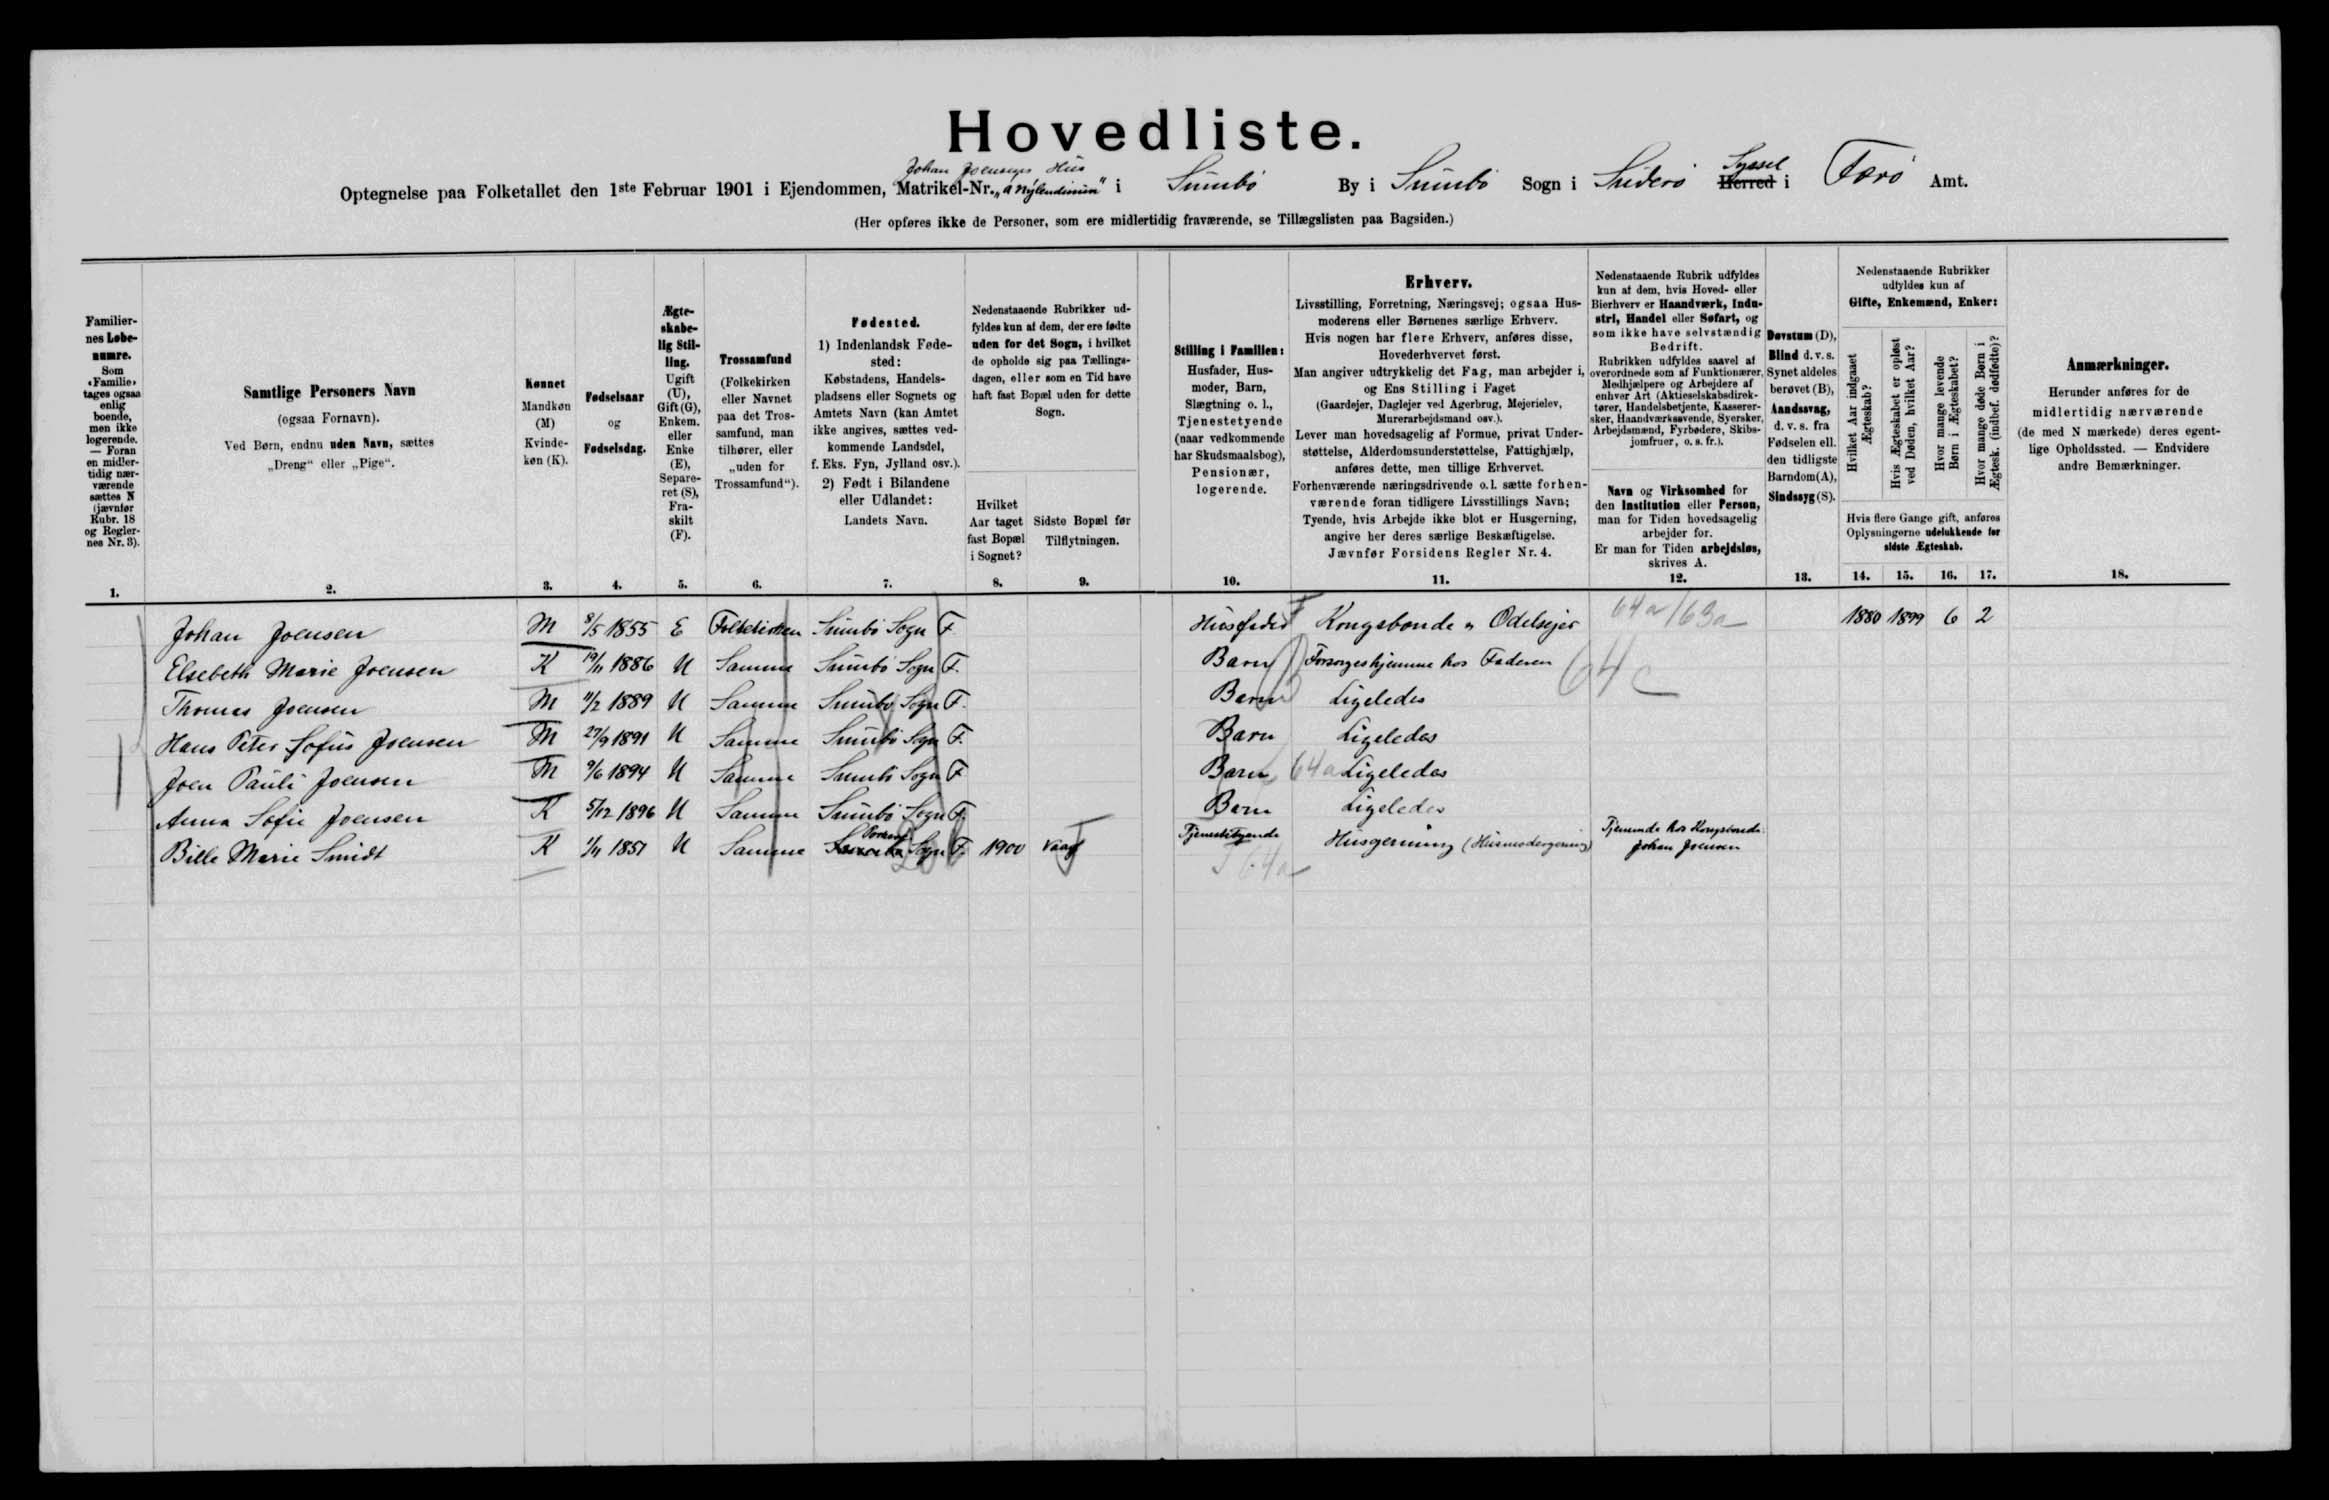 Hovedliste.
Johan Joensens Hus
Optegnelse paa Folketallet den 1ste Februar 1901 i Ejendommen, Matrikel-Nr. „a Nýlendinum" i Sumbø By i Sumbø Sogn i Suderø Herred Syssel i Færø Amt.
(Her opføres ikke de Personer, som ere midlertidig fraværende, se Tillægslisten paa Bagsiden.)
Familiernes Løbenumre.
Som «Familie» tages ogsaa enlig boende, men ikke logerende. — Foran en midlertidig nærværende sættes N (jævnfør Rubr. 18 og Reglernes Nr. 3).
Samtlige Personers Navn
(ogsaa Fornavn).
Ved Børn, endnu uden Navn, sættes
„Dreng" eller „Pige".
Kønnet
Mandkøn (M)
Kvindekøn (K).
Fødselsaar
og
Fødselsdag.
Ægteskabelig Stilling.
Ugift (U), Gift (G), Enkem. eller Enke (E), Separeret (S), Fraskilt (F).
Trossamfund
(Folkekirken eller Navnet paa det Trossamfund, man tilhører, eller „uden for Trossamfund").
Fødested.
1) Indenlandsk Fødested:
Købstadens, Handelspladsens eller Sognets og Amtets Navn (kan Amtet ikke angives, sættes vedkommende Landsdel, f. Eks. Fyn, Jylland osv.).
2) Født i Bilandene eller Udlandet:
Landets Navn.
Nedenstaaende Rubrikker udfyldes kun af dem, der ere fødte uden for det Sogn, i hvilket de opholde sig paa Tællingsdagen, eller som en Tid have haft fast Bopæl uden for dette Sogn.
Hvilket Aar taget fast Bopæl i Sognet?
Sidste Bopæl før Tilflytningen.
Stilling i Familien:
Husfader, Husmoder, Barn, Slægtning o. l., Tjenestetyende (naar vedkommende har Skudsmaalsbog), Pensionær, logerende.
Erhverv.
Livsstilling, Forretning, Næringsvej; ogsaa Husmoderens eller Børnenes særlige Erhverv.
Hvis nogen har flere Erhverv, anføres disse, Hovederhvervet først.
Man angiver udtrykkelig det Fag, man arbejder i, og Ens Stilling i Faget
(Gaardejer, Daglejer ved Agerbrug, Mejerielev, Murerarbejdsmand osv.).
Lever man hovedsagelig af Formue, privat Understøttelse, Alderdomsunderstøttelse, Fattighjælp, anføres dette, men tillige Erhvervet.
Forhenværende næringsdrivende o. l. sætte forhenværende foran tidligere Livsstillings Navn;
Tyende, hvis Arbejde ikke blot er Husgerning, angive her deres særlige Beskæftigelse.
Jævnfør Forsidens Regler Nr. 4.
Nedenstaaende Rubrik udfyldes kun af dem, hvis Hoved- eller Bierhverv er Haandværk, Industri, Handel eller Søfart, og som ikke have selvstændig Bedrift.
Rubrikken udfyldes saavel af overordnede som af Funktionærer, Medhjælpere og Arbejdere af enhver Art (Aktieselskabsdirektører, Handelsbetjente, Kasserersker, Haandværkssvende, Syersker, Arbejdsmænd, Fyrbødere, Skibsjomfruer, o. s. fr.).
Navn og Virksomhed for den Institution eller Person, man for Tiden hovedsagelig arbejder for.
Er man for Tiden arbejdsløs, skrives A.
Døvstum (D), Blind d. v. s. Synet aldeles berøvet (B), Aandssvag, d. v. s. fra Fødselen ell. den tidligste Barndom (A), Sindssyg (S).
Nedenstaaende Rubrikker udfyldes kun af
Gifte, Enkemænd, Enker:
Hvilket Aar indgaaet Ægteskab?
Hvis Ægteskabet er opløst ved Døden, hvilket Aar?
Hvor mange levende Børn i Ægteskabet?
Hvor mange døde Børn i Ægtesk. (indbef. dødfødte)?
Hvis flere Gange gift, anføres Oplysningerne udelukkende for sidste Ægteskab.
Anmærkninger.
Herunder anføres for de midlertidig nærværende (de med N mærkede) deres egentlige Opholdssted. — Endvidere andre Bemærkninger.
1. 2. 3. 4. 5. 6. 7. 8. 9. 10. 11. 12. 13. 14. 15. 16. 17. 18.
Johan Joensen M 8/5 1855 E Folkekirken Sumbø Sogn F. Husfader Kongsbonde og Odelsejer 64a/63a 1880 1899 6 2
Elsebeth Marie Joensen K 19/11 1886 U Samme Sumbø Sogn F. Barn Forsørges hjemme hos Faderen 64c
Thomas Joensen M 11/2 1889 U Samme Sumbø Sogn F. Barn Ligeledes
Hans Peter Sofus Joensen M 27/9 1891 U Samme Sumbø Sogn F. Barn Ligeledes
Joen Pauli Joensen M 9/6 1894 U Samme Sumbø Sogn F. Barn 64a Ligeledes
Anna Sofie Joensen K 5/12 1896 U Samme Sumbø Sogn F. Barn Ligeledes
Bille Marie Smidt K 1/11 1851 U Samme Sogn F. 1900 Vaag Tjenestetyende Husgerning (Husmodergerning) Tjenende hos Kongsbonde Johan Joensen
64a